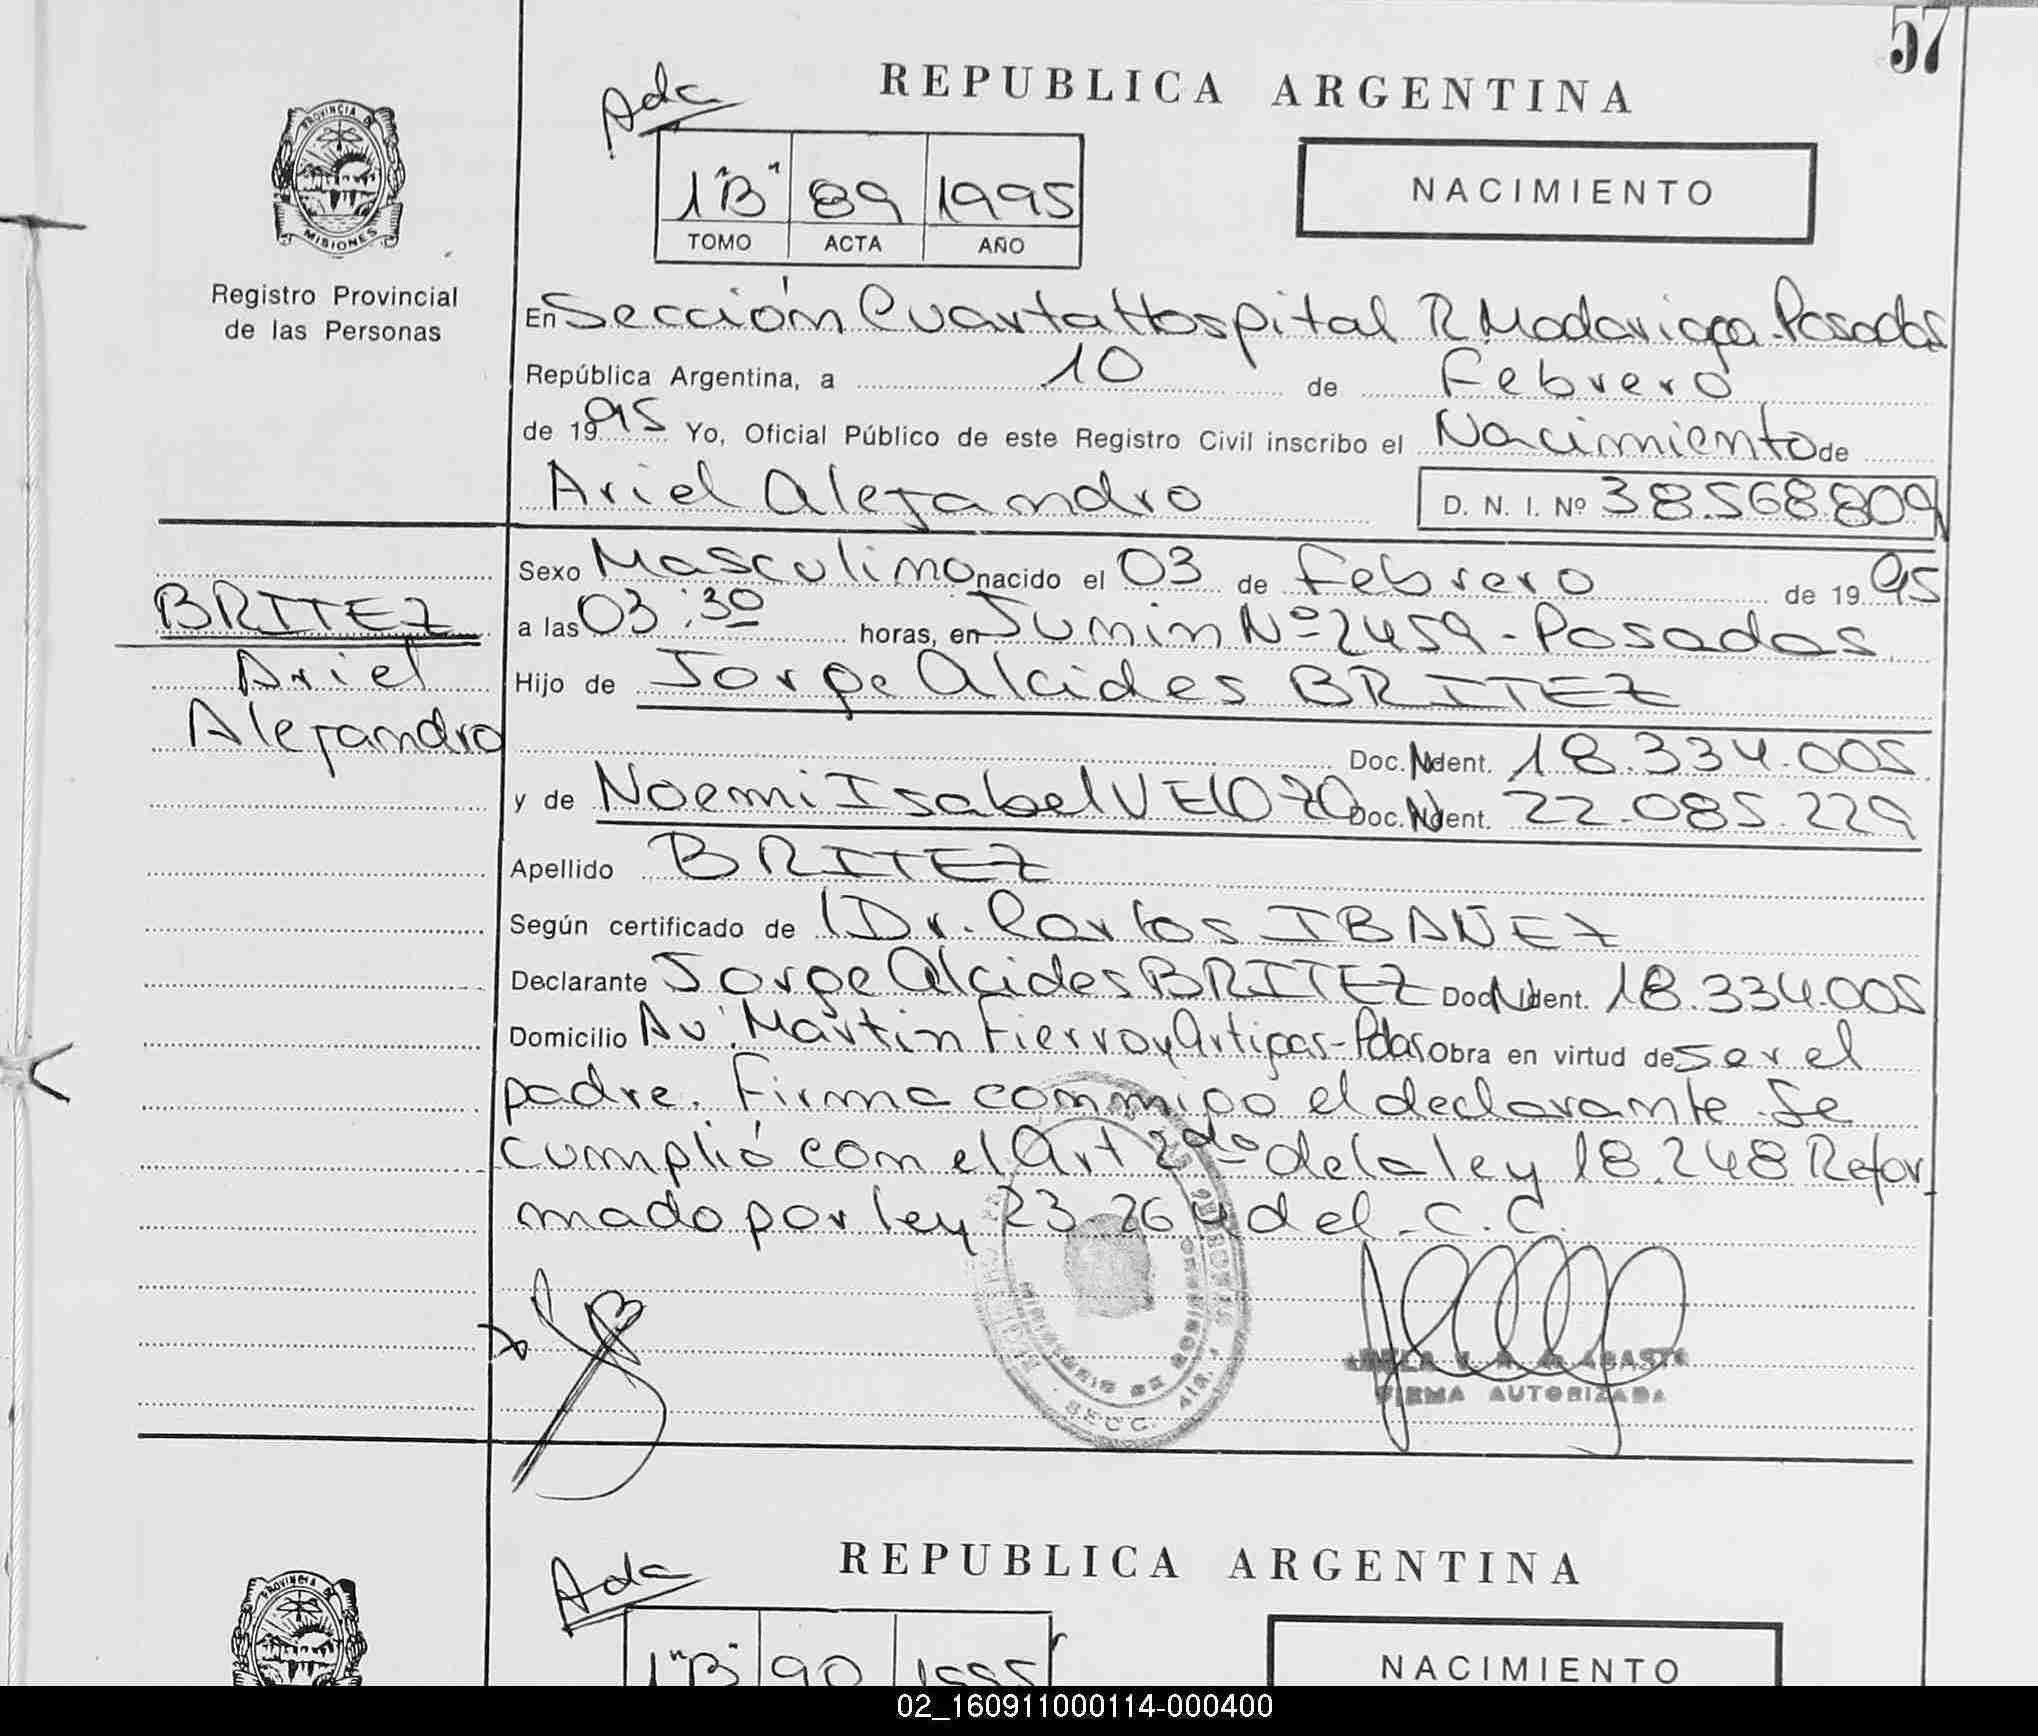 57
REPUBLICA ARGENTINA
Ada
PROVINCIA DE
MISIONES
1"B" 89 1995
TOMO ACTA AÑO
NACIMIENTO
Registro Provincial
de las Personas
En Sección Cuarta Hospital R Madariaga - Posadas
República Argentina, a 10 de Febrero
de 1995 Yo, Oficial Público de este Registro Civil inscribo el Nacimiento de
Ariel Alejandro D. N. I. Nº 38.568.809
BRITEZ
Ariel
Alejandro
Sexo Masculino nacido el 03 de Febrero de 1995
a las 03:30 horas, en Junin Nº 2459 - Posadas
Hijo de Jorge Alcides BRITEZ
Doc. Ident. 18.334.005
y de Noemi Isabel Doc. Ident. 22.085.229
Apellido BRITEZ
Según certificado de Dr. Carlos IBAÑEZ
Declarante Jorge Alcides BRITEZ Doc. Ident. 18.334.005
Domicilio Av. Martin Fierro y Artigas - Pdas Obra en virtud de ser el
padre. Firma conmigo el declarante. Se
cumplió con el Art 2do de la ley 18.248 Refor
mado por ley 23.264 del C.C.
SECC. 4ta.
FIRMA AUTORIZADA
REPUBLICA ARGENTINA
Ada
PROVINCIA DE
1"B" 90 1995
NACIMIENTO
02_160911000114-000400